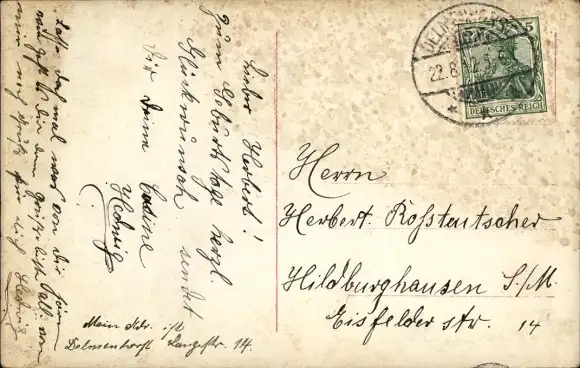 Lieber Herbert!
Zum Geburtstage herzl.
Glückwunsch sendet
Dir Deine Cousine
Hedwig
Laß' doch mal was von Dir hören
wie geht es Dir denn
Mein Adr. ist
Delmenhorst Langestr. 14.
DELMENHORST
22.8.
DEUTSCHES REICH
5
Herrn
Herbert Rossteutscher
Hildburghausen S./M.
Eisfelder str. 14